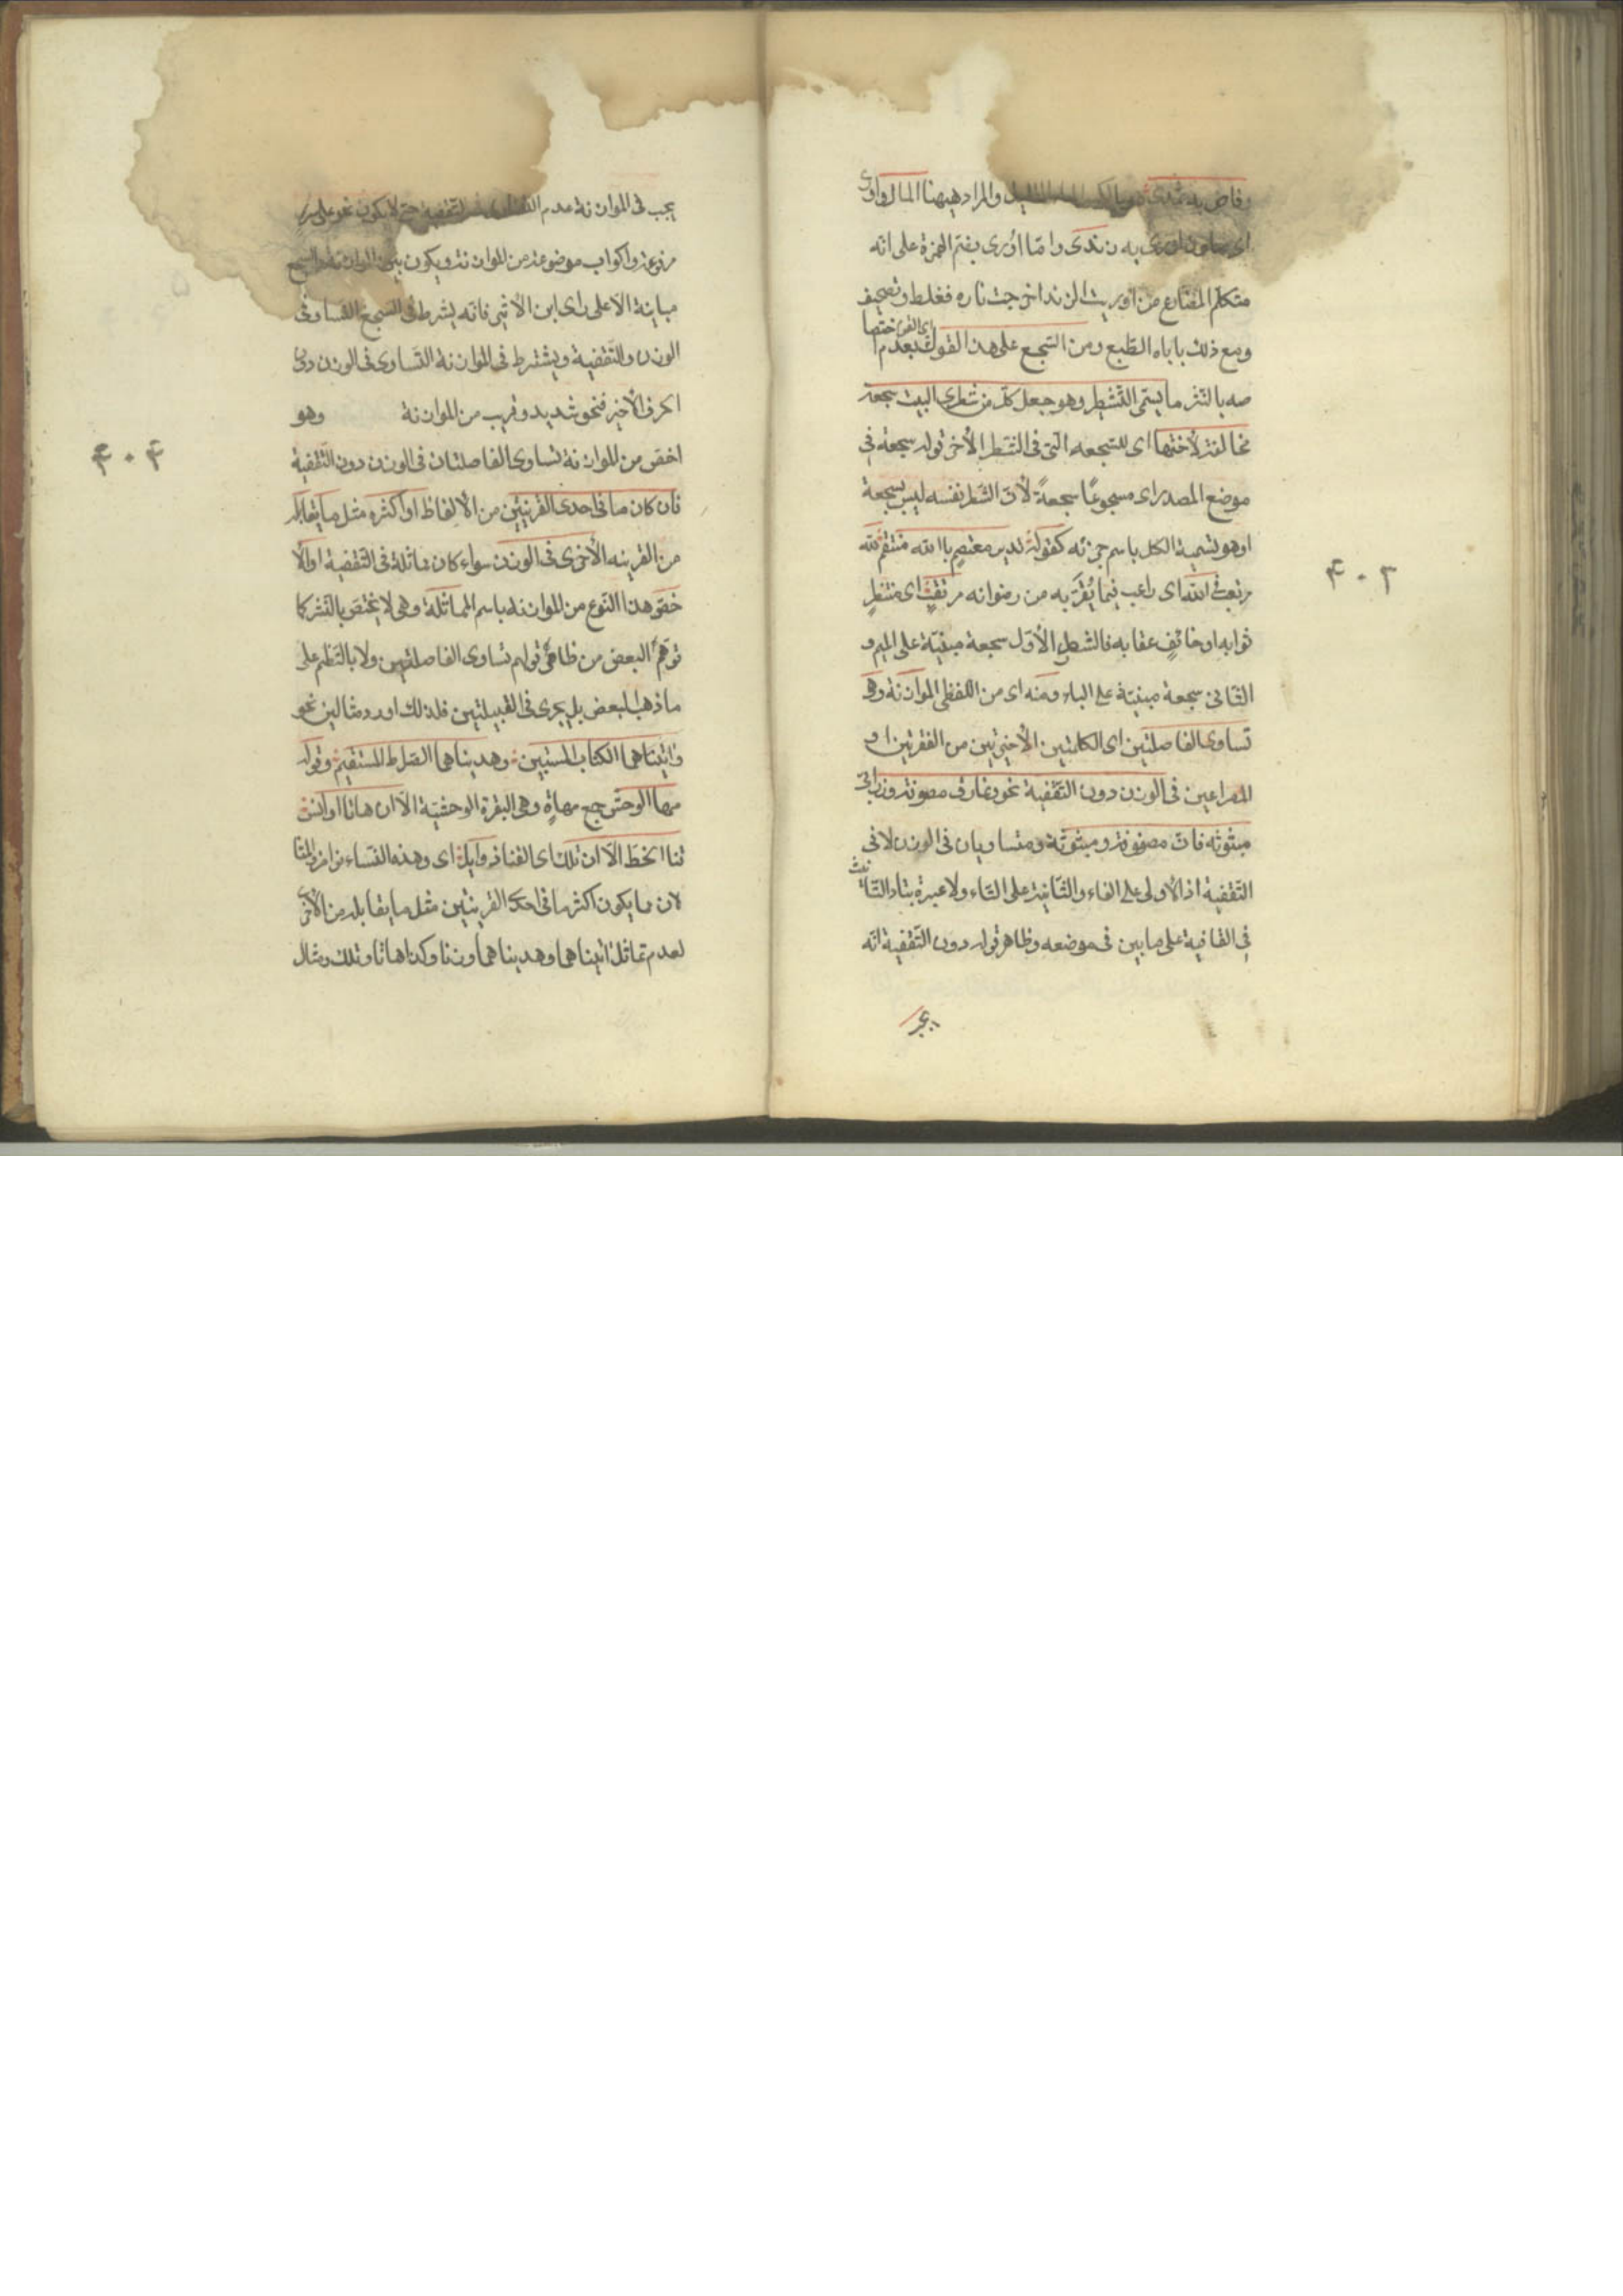 وفاض به ثمدى هو بالكسر الماء القليل والمراد ههنا المال واورى
اى صار ذا ورى به زندى واما اورى بفتح الهمزة على انه
متكلم المضارع من اوريت الزند اخرجت ناره فغلط وتصحيف
ومع ذلك ياباه الطبع ومن السجع على هذا القول بعدم اختصا
صه بالنثر ما يسمى التشطير وهو جعل كل من شطرى البيت سجعة
مخالفة لاختها اى للسجعه التى فى الشطر الأخر قوله سجعة فى
موضع المصدر اى مسجوعًا سجعةً لأن الشطر نفسه ليس بسجعة
او هو تسمية الكل باسم جزئه كقوله تدبير معتصمٍ باالله منتقم لله
مرتغب فى الله اى راغب فيما يُقَرِّبه من رضوانه مرتقبٍ اى منتظرٍ
ثوابه او خائفٍ عقابه فالشطر الأول سجعة مبنيّة على الميم و
الثانى سجعة مبنيّة على الباء ومنه اى من اللفظى الموازنة وهى
تساوى الفاصلتين اى الكلمتين الأخيرتين من الفقرتين او
المصراعين فى الوزن دون التقفية نحو ونمارق مصفوفة وزرابى
مبثوثه فان مصفوفة ومبثوثة متساويان فى الوزن لا فى
التقفية اذ الأولى على الفاء والثانية على الثاء ولا عبرة بتاء التانيث
فى القافية على ما بين فى موضعه وظاهر قوله دون التقفية انه
يجب
۴۰۳
يجب فى الموازنة عدم التساوى فى التقفية حتى لا يكون نحو على سرر
مرفوعة واكواب موضوعة من الموازنة ويكون بين الموازنة والسجع
مباينة الا على راى ابن الأثير فانه يشترط فى السجع التساوى فى
الوزن والتقفية ويشترط فى الموازنة التساوى فى الوزن دون
الحرف الأخير فنحو شديد وقريب من الموازنة وهو
اخص من الموازنة تساوى الفاصلتان فى الوزن دون التقفية
فان كان ما فى احدى القرينتين من الألفاظ او اكثره مثل ما يقابله
من القرينه الأخرى فى الوزن سواء كان مماثلة فى التقفية اولا
خصّ هذا النوع من الموازنه باسم المماثلة وهى لا يختص بالنثر كما
توهم البعض من ظاهر قولهم تساوى الفاصلتين ولا بالنظم على
ما ذهب البعض بل يجرى فى القبيلتين فلذلك اورد مثالين نحو
واتيناهما الكتاب المستبين وهديناهما الصراط المستقيم وقوله
مها الوحش جمع مهاةٍ وهى البقرة الوحشيّة الا ان هاتا اوانس
قنا الخط الا ان تلك اى القنا ذوابل اى وهذه النساء نواضر والمثا
لان مما يكون اكثر ما فى احدى القرينتين مثل ما يقابله من الأخرى
لعدم تماثل اتيناهما وهديناهما وزنا وكذا هاتا وتلك ومثال
۴۰۴